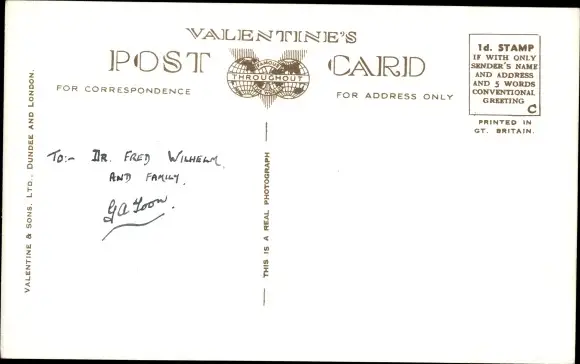 VALENTINE'S
POST CARD
THROUGHOUT
FOR CORRESPONDENCE
FOR ADDRESS ONLY
1d. STAMP
IF WITH ONLY
SENDER'S NAME
AND ADDRESS
AND 5 WORDS
CONVENTIONAL
GREETING
C
PRINTED IN
GT. BRITAIN.
VALENTINE & SONS, LTD., DUNDEE AND LONDON.
TO:- DR. FRED WILHELM.
AND FAMILY.
GA Toon.
THIS IS A REAL PHOTOGRAPH